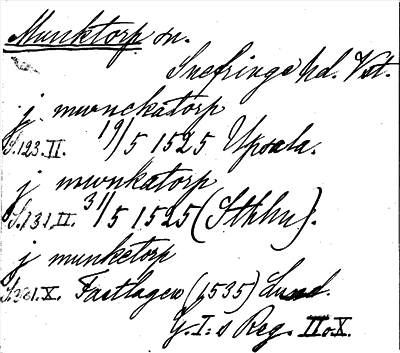 Munktorp sn.
Snefringe hd. Vst.
j mwnckatorp
S. 123. II. 19/5 1525 Upsala.
j mwnkatorp
S. 131. II. 31/5 1525 (Sthlm).
j munketorp
S. 321. X. Fastlagen (1535) Lund.
G. I:s Reg. II o. X.